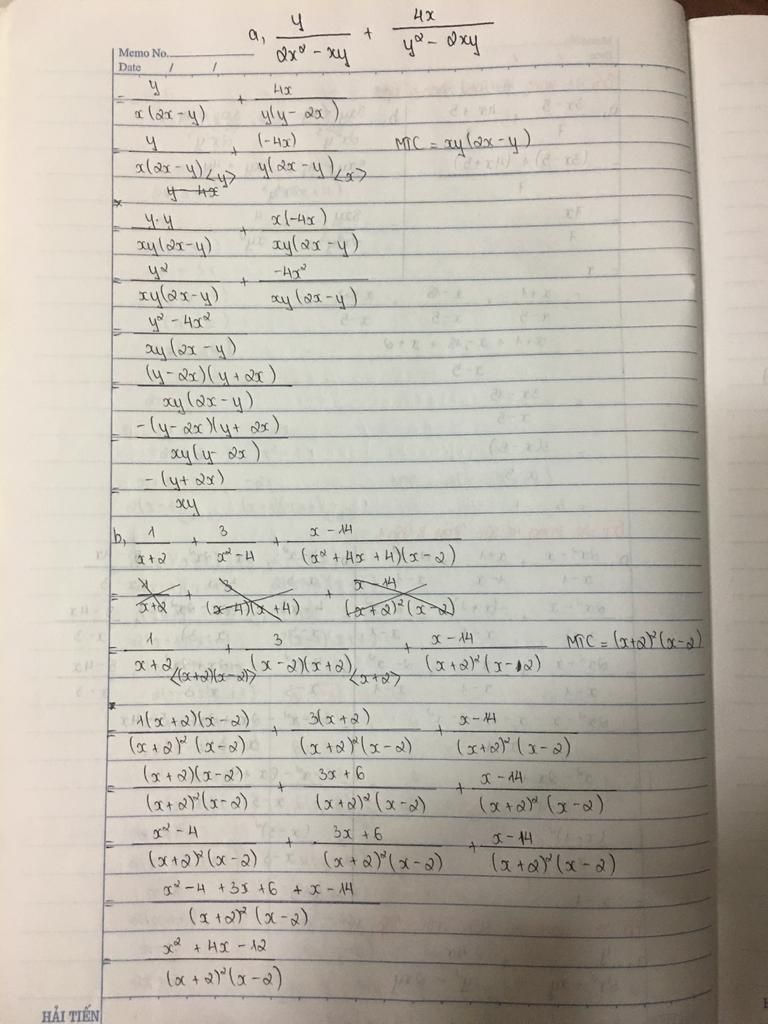 a, y/(2x² - xy) + 4x/(y² - 2xy)
Memo No.
Date / /
= y/(x(2x-y)) + 4x/(y(y-2x))
= y/(x(2x-y)) <y> + (-4x)/(y(2x-y)) <x> MTC = xy(2x-y)
y - 4x
= y.y/(xy(2x-y)) + x(-4x)/(xy(2x-y))
= y²/(xy(2x-y)) + -4x²/(xy(2x-y))
= (y² - 4x²)/(xy(2x-y))
= (y-2x)(y+2x)/(xy(2x-y))
= -(y-2x)(y+2x)/(xy(y-2x))
= -(y+2x)/(xy)
b, 1/(x+2) + 3/(x²-4) + (x-14)/((x²+4x+4)(x-2))
= 1/(x+2) + 3/((x-4)(x+4)) + (x-14)/((x+2)²(x-2))
= 1/(x+2) <(x+2)(x-2)> + 3/((x-2)(x+2)) <x+2> + (x-14)/((x+2)²(x-2)) MTC = (x+2)²(x-2)
= 1(x+2)(x-2)/((x+2)²(x-2)) + 3(x+2)/((x+2)²(x-2)) + (x-14)/((x+2)²(x-2))
= (x+2)(x-2)/((x+2)²(x-2)) + (3x+6)/((x+2)²(x-2)) + (x-14)/((x+2)²(x-2))
= (x²-4)/((x+2)²(x-2)) + (3x+6)/((x+2)²(x-2)) + (x-14)/((x+2)²(x-2))
= (x²-4+3x+6+x-14)/((x+2)²(x-2))
= (x²+4x-12)/((x+2)²(x-2))
HẢI TIẾN